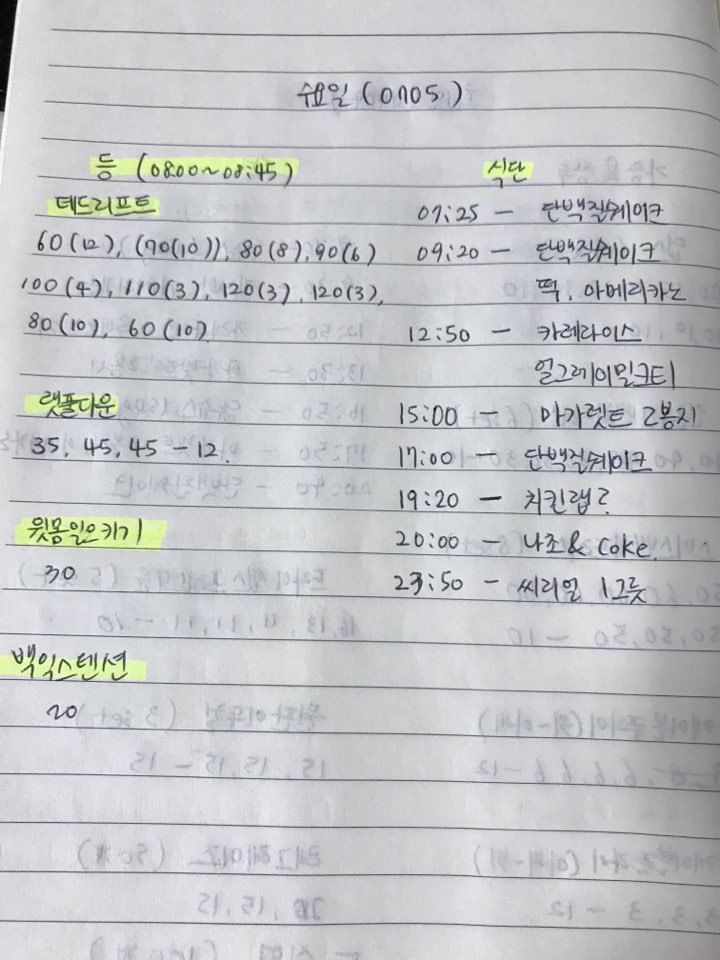 수요일 (0705)
등 (08:00~08:45)
데드리프트
60(12), (70(10)), 80(8), 90(6)
100(4), 110(3), 120(3), 120(3),
80(10), 60(10)
랫풀다운
35, 45, 45 - 12.
윗몸일으키기
30
백익스텐션
20
식단
07:25 - 단백질쉐이크
09:20 - 단백질쉐이크
떡, 아메리카노
12:50 - 카레라이스
얼그레이밀크티
15:00 - 마가렛트 2봉지
17:00 - 단백질쉐이크
19:20 - 치킨랩?
20:00 - 나쵸 & coke.
23:50 - 씨리얼 1그릇